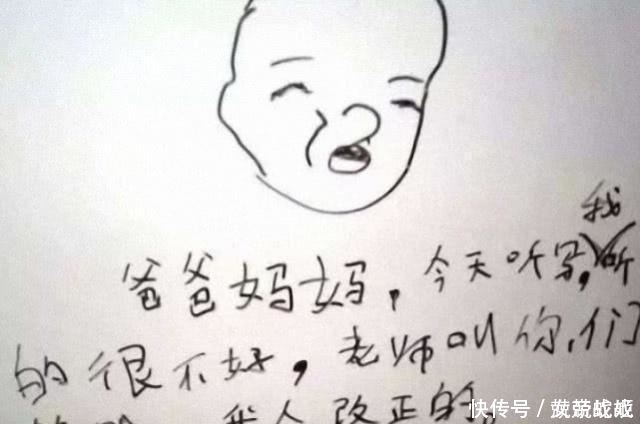 我
爸爸妈妈，今天听写，听
的很不好，老师叫你们
我会改正的。
快传号/